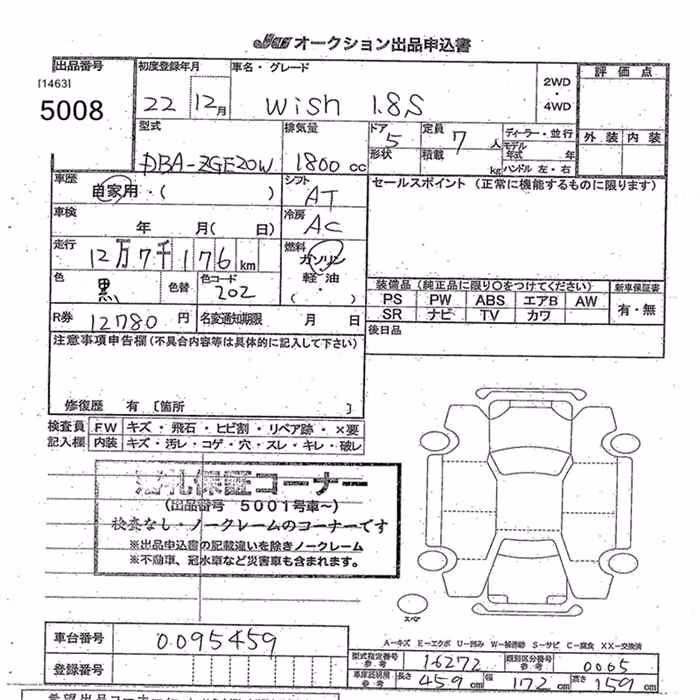 JCS オークション出品申込書
出品番号 初度登録年月 車名・グレード 2WD・4WD 評価点
[1463]
5008 22 12月 Wish 1.8S
型式 排気量 ドア 5 定員 7人 ディーラー・並行 外装 内装
DBA-ZGE20W 1800cc 形状 積載 kg モデル年式 年 ハンドル 左・右
車歴 自家用・( ) シフト AT セールスポイント (正常に機能するものに限ります)
車検 年 月( 日) 冷房 AC
走行 12万7千176km 燃料 ガソリン・軽油・( )
色 黒 色替 色コード 202 装備品 (純正品に限り○をつけてください) 新車保証書
PS PW ABS エアB AW 有・無
SR ナビ TV カワ
R券 12780円 名変通知期限 月 日 後日品
注意事項申告欄(不具合内容等は具体的に記入して下さい)
修復歴 有 [箇所 ]
検査員 FW キズ・飛石・ヒビ割・リペア跡・×要
記入欄 内装 キズ・汚レ・コゲ・穴・スレ・キレ・破レ
保証コーナー
(出品番号 5001号車~)
検査なし・ノークレームのコーナーです
※出品申込書の記載違いを除きノークレーム
※不動車、冠水車など災害車も含まれます。
スペア
A-キズ E-エクボ U-凹み W-補修跡 S-サビ C-腐食 XX-交換済
車台番号 0095459 型式指定番号参考 16272 類別区分番号参考 0065
登録番号 車庫証明用参考 長さ 459cm 幅 172cm 高さ 159cm
希望出品コーナー